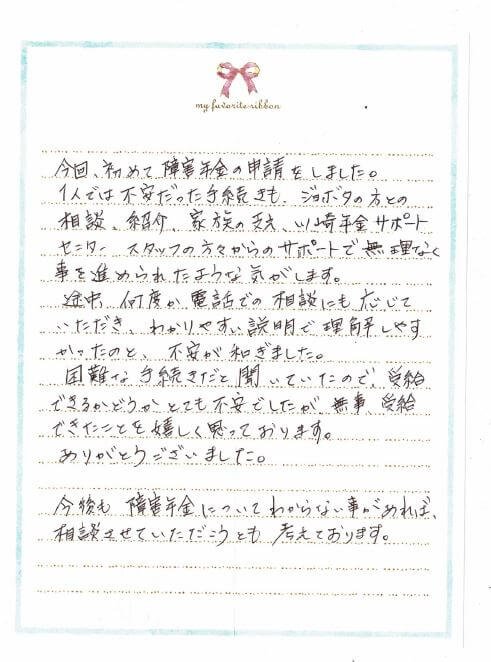 my favorite ribbon
今回、初めて障害年金の申請をしました。
1人では不安だった手続きも、ジョボタの方との
相談、紹介、家族の支え、川崎年金サポート
センター スタッフの方々からのサポートで無理なく
事を進められたような気がします。
途中、何度か電話での相談にも応じて
いただき、わかりやすい説明で理解しやす
かったのと、不安が和ぎました。
困難な手続きだと聞いていたので、受給
できるかどうかとても不安でしたが、無事、受給
できたことを嬉しく思っております。
ありがとうございました。
今後も障害年金についてわからない事があれば、
相談させていただこうとも考えております。